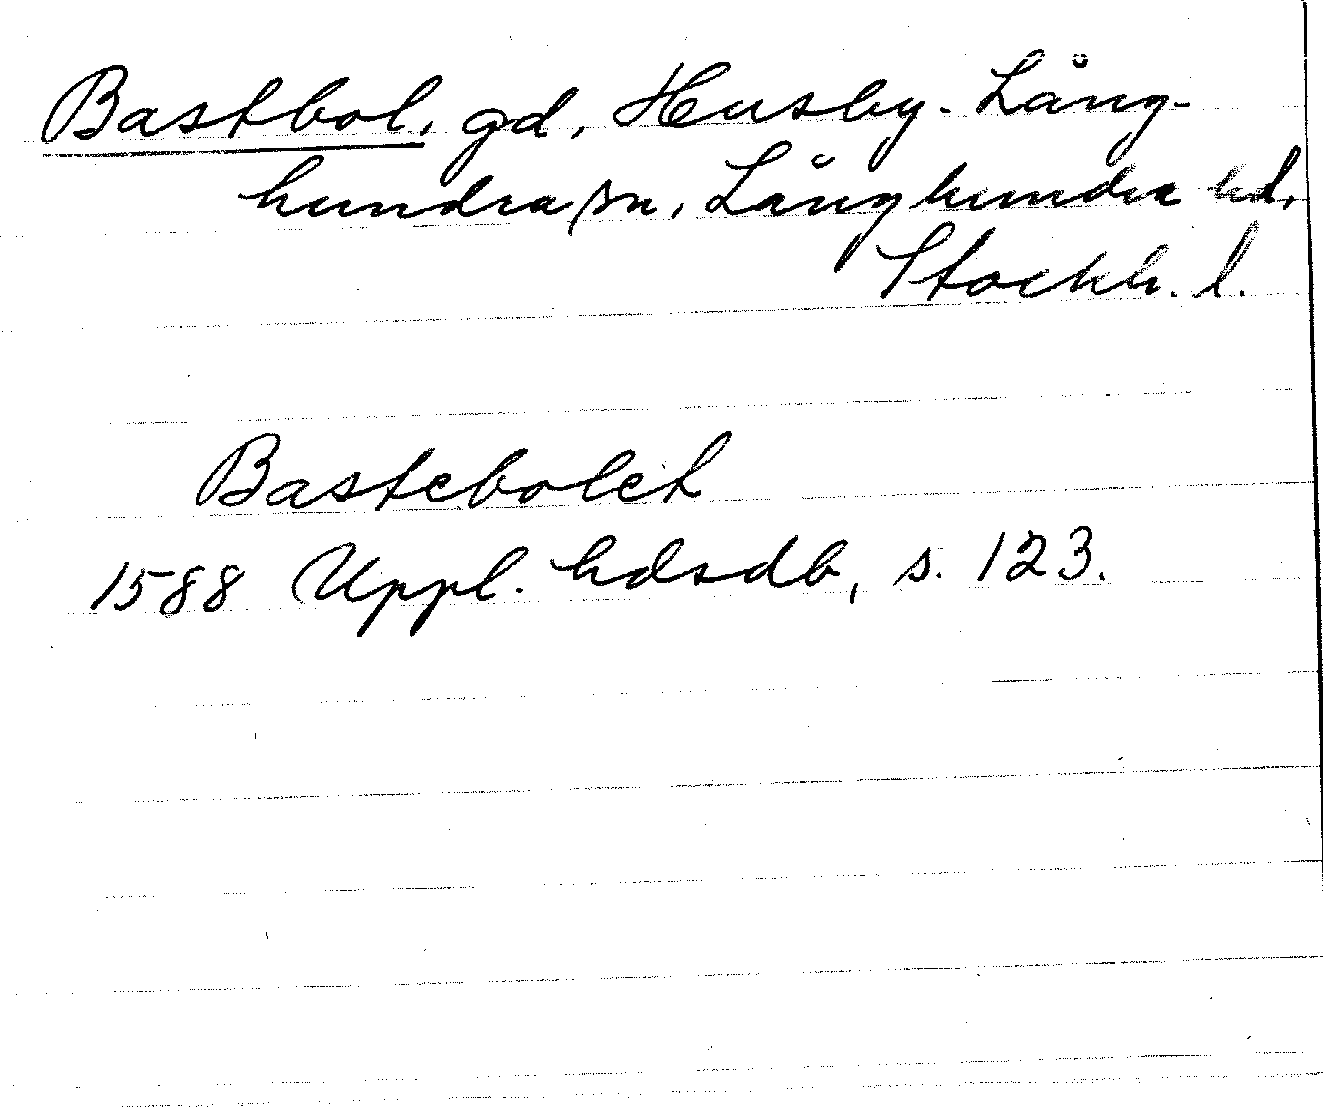 Bastbol, gd, Husby-Lång-
hundra sn, Långhundra hd,
Stockh. l.
Bastebolet
1588 Uppl. hdsdb, s. 123.